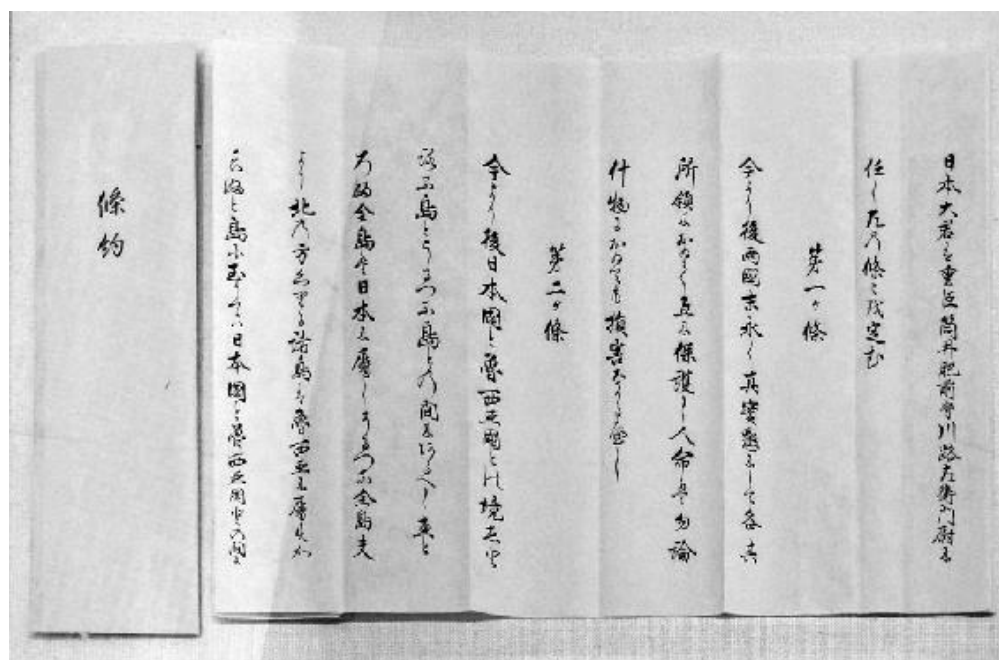 日本大君は重臣筒井肥前守川路左衛門尉に
任し左の條々を定む
第一ヶ條
今より後両國末永く真實懇にして各其
所領におゐて互に保護し人命は勿論
什物におゐても損害なかるへし
第二ヶ條
今より後日本國と魯西亜國との境ゑと
ろふ島とうるつふ島との間にあるへしゑと
ろふ全島は日本に属しうるつふ全島夫
より北の方くりる諸島は魯西亜に属すか
らふと島に至りては日本國と魯西亜国との間
條約